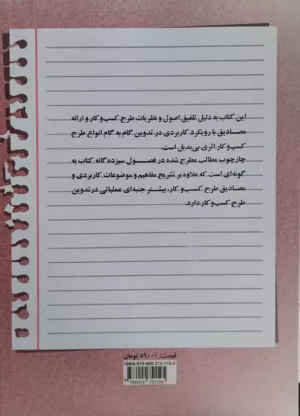 این کتاب به دلیل تلفیق اصول و نظریات طرح کسب‌وکار و ارائه
مصادیق با رویکرد کاربردی در تدوین گام به گام انواع طرح
کسب‌وکار اثری بی‌بدیل است.
چارچوب مطالب مطرح شده در فصول سیزده‌گانه کتاب به
گونه‌ای است که علاوه بر تشریح مفاهیم و موضوعات کاربردی و
مصادیق طرح کسب‌وکار، بیشتر جنبه‌ای عملیاتی در تدوین
طرح کسب‌وکار دارد.
قیمت: ۵۹۰۰۰ تومان